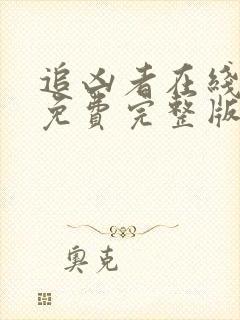 追凶者在线
免费完整版
奥克